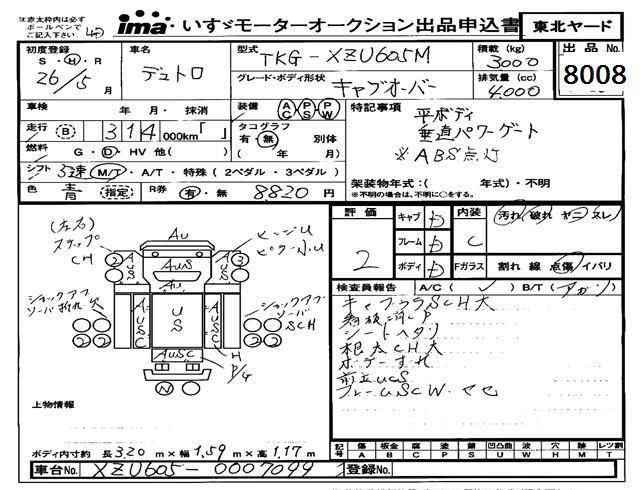 注赤太枠内は必ず
ボールペンで
ご記入下さい。
ima いすゞモーターオークション出品申込書
東北ヤード
初度登録 S・H・R 26/5月
車名 デュトロ
型式 TKG-XZU605M
グレード・ボディ形状 キャブオーバー
積載(kg) 3000
排気量(cc) 4000
出品No. 8008
車検 年 月・抹消
装備 AC PS PW
特記事項 平ボディ
垂直パワーゲート
※ABS点灯
走行 B 314 000km「 」
タコグラフ 有・無 別体
( 年 月)
燃料 G・D・HV 他( )
シフト 5速 M/T・A/T・特殊(2ペダル・3ペダル)
架装物年式:( 年式)・不明
※不明の場合は、不明に○をする。
色 青 (指定) R券 有・無 8820円
評価 2
キャブ D
フレーム D
ボディ D
内装 C 汚れ 破れ ヤニ スレ
Fガラス 割れ 線 点傷 イバリ
検査員報告 A/C( ✓ ) B/T( )
キャブ ウラSCH大
看板消しP
シートヘタリ
根太CH大
ボデーすれ
前立UCS
フレームSCW・サビ
(左右)
ステップ
CH
AU
AUS
AU
US
AUSC
AUSC
AUSC
ヒンジU
ピラー小U
ショックアブ
ソーバ折れ欠
ショックアブ
ソーバSCH
H
P/G
N
上物情報
ボディ内寸約 長3.20m×幅1.59m×高1.17m
記号 傷 板金 腐 塗 錆 凹凸曲 波 穴 外 レツ割
A B C P S U W H M T
車台No. XZU605-0007099
登録No.